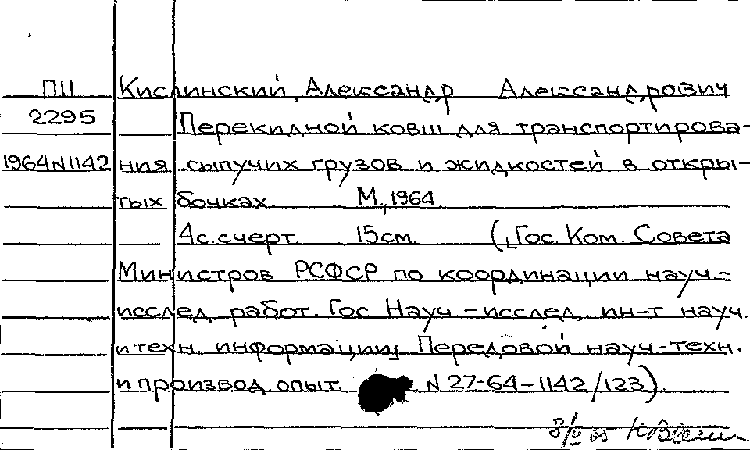 П11 Кислинский, Александр Александрович
2295 Перекидной ковш для транспортирова-
1964N1142 ния сыпучих грузов и жидкостей в откры-
тых бочках. М, 1964
4с. с черт. 15см. (Гос. Ком. Совета
Министров РСФСР по координации науч.-
исслед. работ. Гос Науч-исслед. ин-т науч.
и техн. информации, Передовой науч-техн.
и производ. опыт. N 27-64-1142/123).